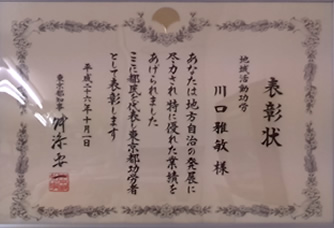 表彰状
地域活動功労
川口雅敏様
あなたは地方自治の発展に
尽力され特に優れた業績を
あげられました
ここに都民を代表し東京都功労者
として表彰します
平成二十六年十月一日
東京都知事